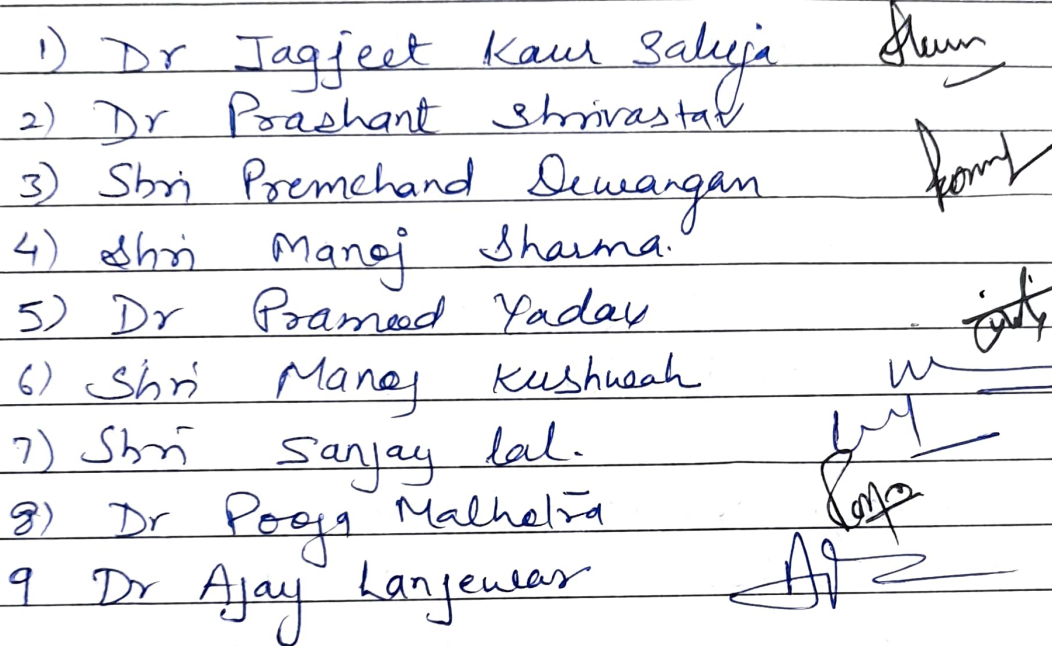 1) Dr Jagjeet Kaur Saluja
2) Dr Prashant Shrivastav
3) Shri Premchand Dewangan
4) Shri Manoj Sharma.
5) Dr Pramod Yadav
6) Shri Manoj Kushwah
7) Shri Sanjay Lal.
8) Dr Pooja Malhotra
9 Dr Ajay Lanjewar